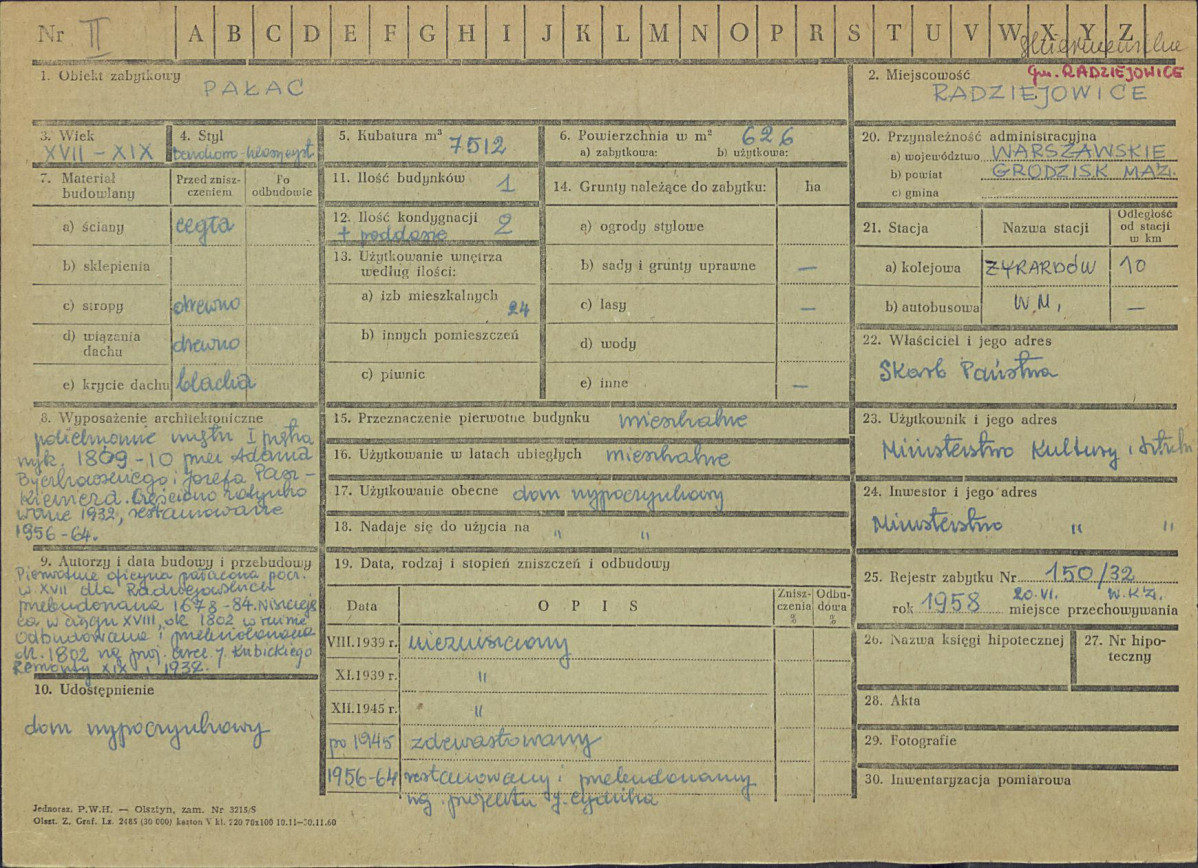 Nr II A B C D E F G H I J K L M N O P R S T U V W X Y Z
Skierniewickie
gm. RADZIEJOWICE
1. Obiekt zabytkowy
PAŁAC
2. Miejscowość
RADZIEJOWICE
3. Wiek
XVII – XIX
4. Styl
5. Kubatura m³ 7512
6. Powierzchnia w m² 626
a) zabytkowa: b) użytkowa:
7. Materiał budowlany
Przed zniszczeniem
Po odbudowie
a) ściany cegła
b) sklepienia
c) stropy drewno
d) wiązania dachu drewno
e) krycie dachu blacha
8. Wyposażenie architektoniczne
wnętrz I piętra
wyk. 1809-10 przez Adama
i Józefa
Częściowo
1932, restaurowane
1956-64.
9. Autorzy i data budowy i przebudowy
Pierwotnie oficyna pałacowa pocz.
w XVII dla Radziejowskich
przebudowana 1678-84.
w ciągu XVIII, ok 1802 w ruinie
Odbudowana i przebudowana
ok. 1802 wg proj. arch J. Kubickiego
Remonty XIX i 1932.
10. Udostępnienie
dom wypoczynkowy
11. Ilość budynków 1
12. Ilość kondygnacji 2
+ poddasze
13. Użytkowanie wnętrza
według ilości:
a) izb mieszkalnych 24
b) innych pomieszczeń
c) piwnic
14. Grunty należące do zabytku: ha
a) ogrody stylowe
b) sady i grunty uprawne —
c) lasy —
d) wody
e) inne —
15. Przeznaczenie pierwotne budynku mieszkalne
16. Użytkowanie w latach ubiegłych mieszkalne
17. Użytkowanie obecne dom wypoczynkowy
18. Nadaje się do użycia na " "
19. Data, rodzaj i stopień zniszczeń i odbudowy
Data OPIS Zniszczenia % Odbudowa %
VIII.1939 r. niezniszczony
XI.1939 r. "
XII.1945 r. "
po 1945 zdewastowany
1956-64 restaurowany i przebudowany
wg. projektu J. Cydzika
20. Przynależność administracyjna
a) województwo WARSZAWSKIE
b) powiat GRODZISK MAZ.
c) gmina
21. Stacja Nazwa stacji Odległość od stacji w km
a) kolejowa ŻYRARDÓW 10
b) autobusowa W.M, —
22. Właściciel i jego adres
Skarb Państwa
23. Użytkownik i jego adres
Ministerstwo Kultury i Sztuki
24. Inwestor i jego adres
Ministerstwo " "
25. Rejestr zabytku Nr 150/32
20.VI. W.K.Z.
rok 1958 miejsce przechowywania
26. Nazwa księgi hipotecznej
27. Nr hipoteczny
28. Akta
29. Fotografie
30. Inwentaryzacja pomiarowa
Jednoraz. P.W.H. — Olsztyn, zam. Nr 3215/S
Olszt. Z. Graf. Lz. 2485 (30 000) karton V kl. 220 70x100 10.11—30.11.60